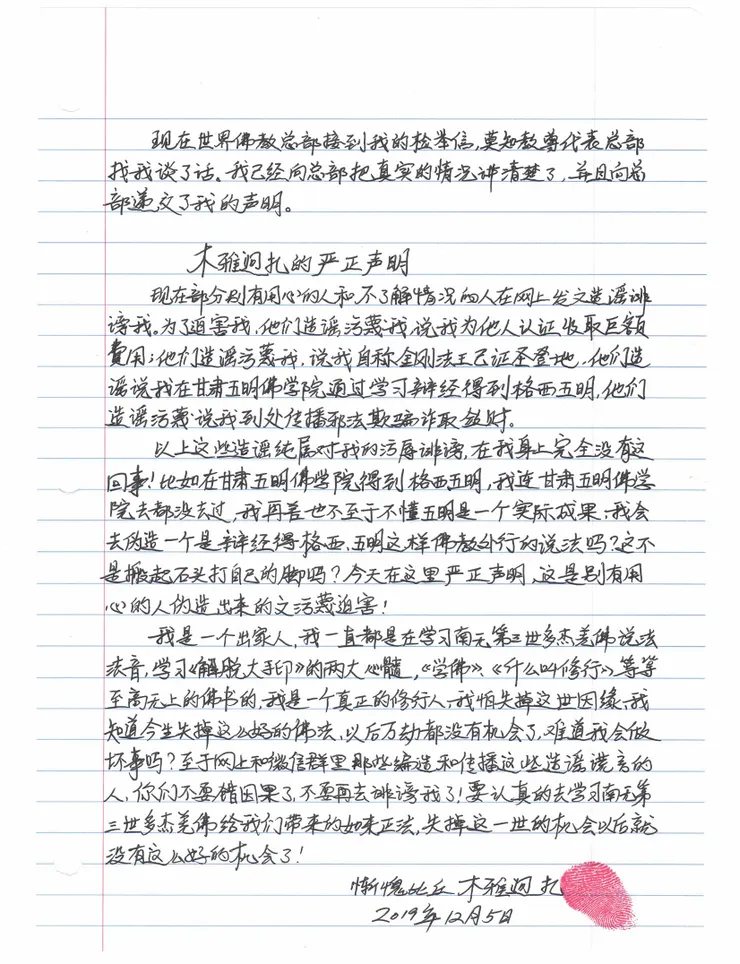 现在世界佛教总部接到我的检举信，莫知教尊代表总部
找我谈了话。我已经向总部把真实的情况讲清楚了，并且向总
部递交了我的声明。
木雅迥扎的严正声明
现在部分别有用心的人和不了解情况的人在网上发文造谣诽
谤我。为了迫害我，他们造谣污蔑我，说我为他人认证收取巨额
費用；他们造谣污蔑我，说我自称金刚法王已证圣登地，他们造
谣说我在甘肃五明佛学院通过学习辩经得到格西五明，他们
造谣污蔑说我到处传播邪法欺骗诈取钱财。
以上这些造谣纯属对我的污辱诽谤，在我身上完全没有这
回事！比如在甘肃五明佛学院得到格西五明，我连甘肃五明佛学
院去都没去过，我再差也不至于不懂五明是一个实际成果，我会
去伪造一个是辩经得格西、五明这样佛教外行的说法吗？这不
是搬起石头打自己的脚吗？今天在这里严正声明，这是别有用
心的人伪造出来的文污蔑迫害！
我是一个出家人，我一直都是在学习南无第三世多杰羌佛说法
法音，学习《解脱大手印》的两大心髓，《学佛》、《什么叫修行》等等
至高无上的佛书的，我是一个真正的修行人，我怕失掉这世因缘，我
知道今生失掉这么好的佛法，以后万劫都没有机会了，难道我会做
坏事吗？至于网上和微信群里那些编造和传播这些造谣谎言的
人，你们不要错因果了，不要再去诽谤我了！要认真的去学习南无第
三世多杰羌佛给我们带来的如来正法，失掉这一世的机会以后就
没有这么好的机会了！
惭愧比丘 木雅迥扎
2019年12月5日